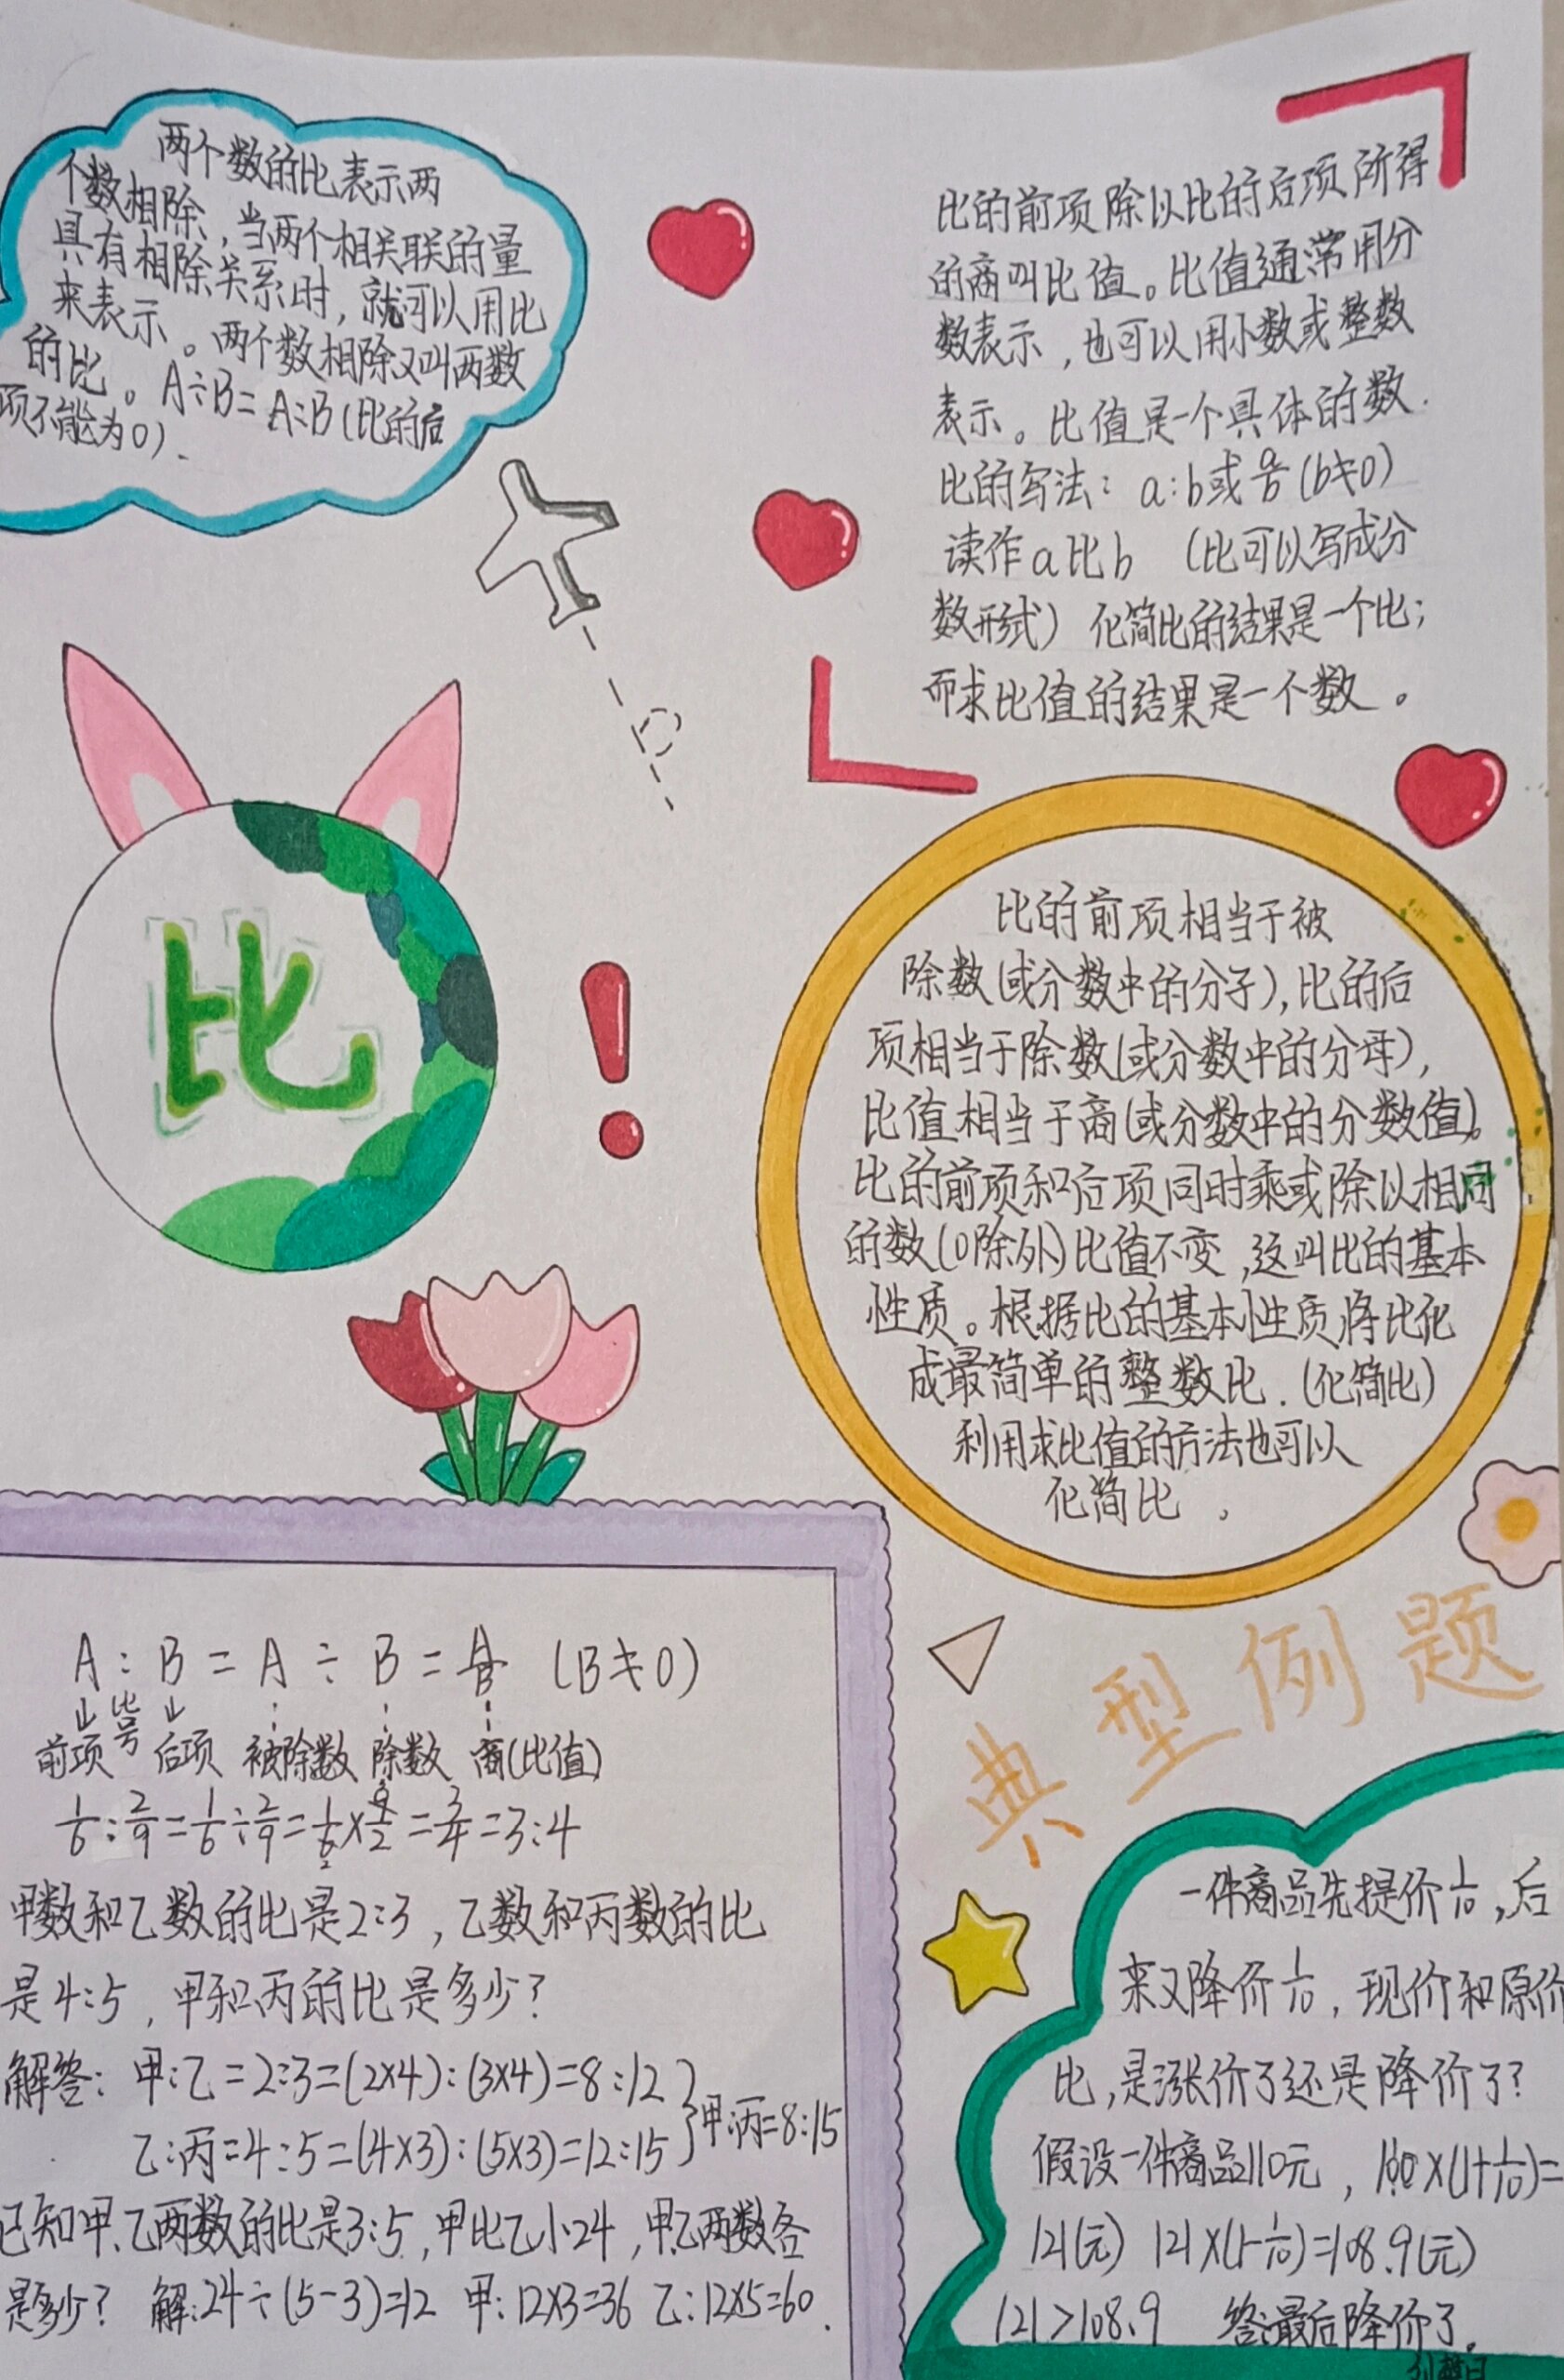 两个数的比表示两
个数相除,当两个相关联的量
具有相除关系时,就可以用比
来表示。两个数相除又叫两数
的比。A÷B=A:B(比的后
项不能为0).
比的前项除以比的后项所得
的商叫比值。比值通常用分
数表示,也可以用小数或整数
表示。比值是一个具体的数.
比的写法:a:b或a/b(b≠0)
读作a比b (比可以写成分
数形式) 化简比的结果是一个比;
而求比值的结果是一个数。
比
比的前项相当于被
除数(或分数中的分子),比的后
项相当于除数(或分数中的分母),
比值相当于商(或分数中的分数值)。
比的前项和后项同时乘或除以相同
的数(0除外)比值不变,这叫比的基本
性质。根据比的基本性质将比化
成最简单的整数比.(化简比)
利用求比值的方法也可以
化简比。
A:B=A÷B=A/B (B≠0)
前项 比号 后项 被除数 除数 商(比值)
1/6:2/9=1/6÷2/9=1/6×9/2=3/4=3:4
甲数和乙数的比是2:3,乙数和丙数的比
是4:5,甲和丙的比是多少?
解答:甲:乙=2:3=(2×4):(3×4)=8:12
乙:丙=4:5=(4×3):(5×3)=12:15 }甲:丙=8:15
已知甲、乙两数的比是3:5,甲比乙小24,甲乙两数各
是多少? 解:24÷(5-3)=12 甲:12×3=36 乙:12×5=60.
典型例题
一件商品先提价1/10,后
来又降价1/10,现价和原价
比,是涨价了还是降价了?
假设一件商品110元, ×(1+1/10)=
121(元) 121×(1-1/10)=108.9(元)
121>108.9 答:最后降价了。